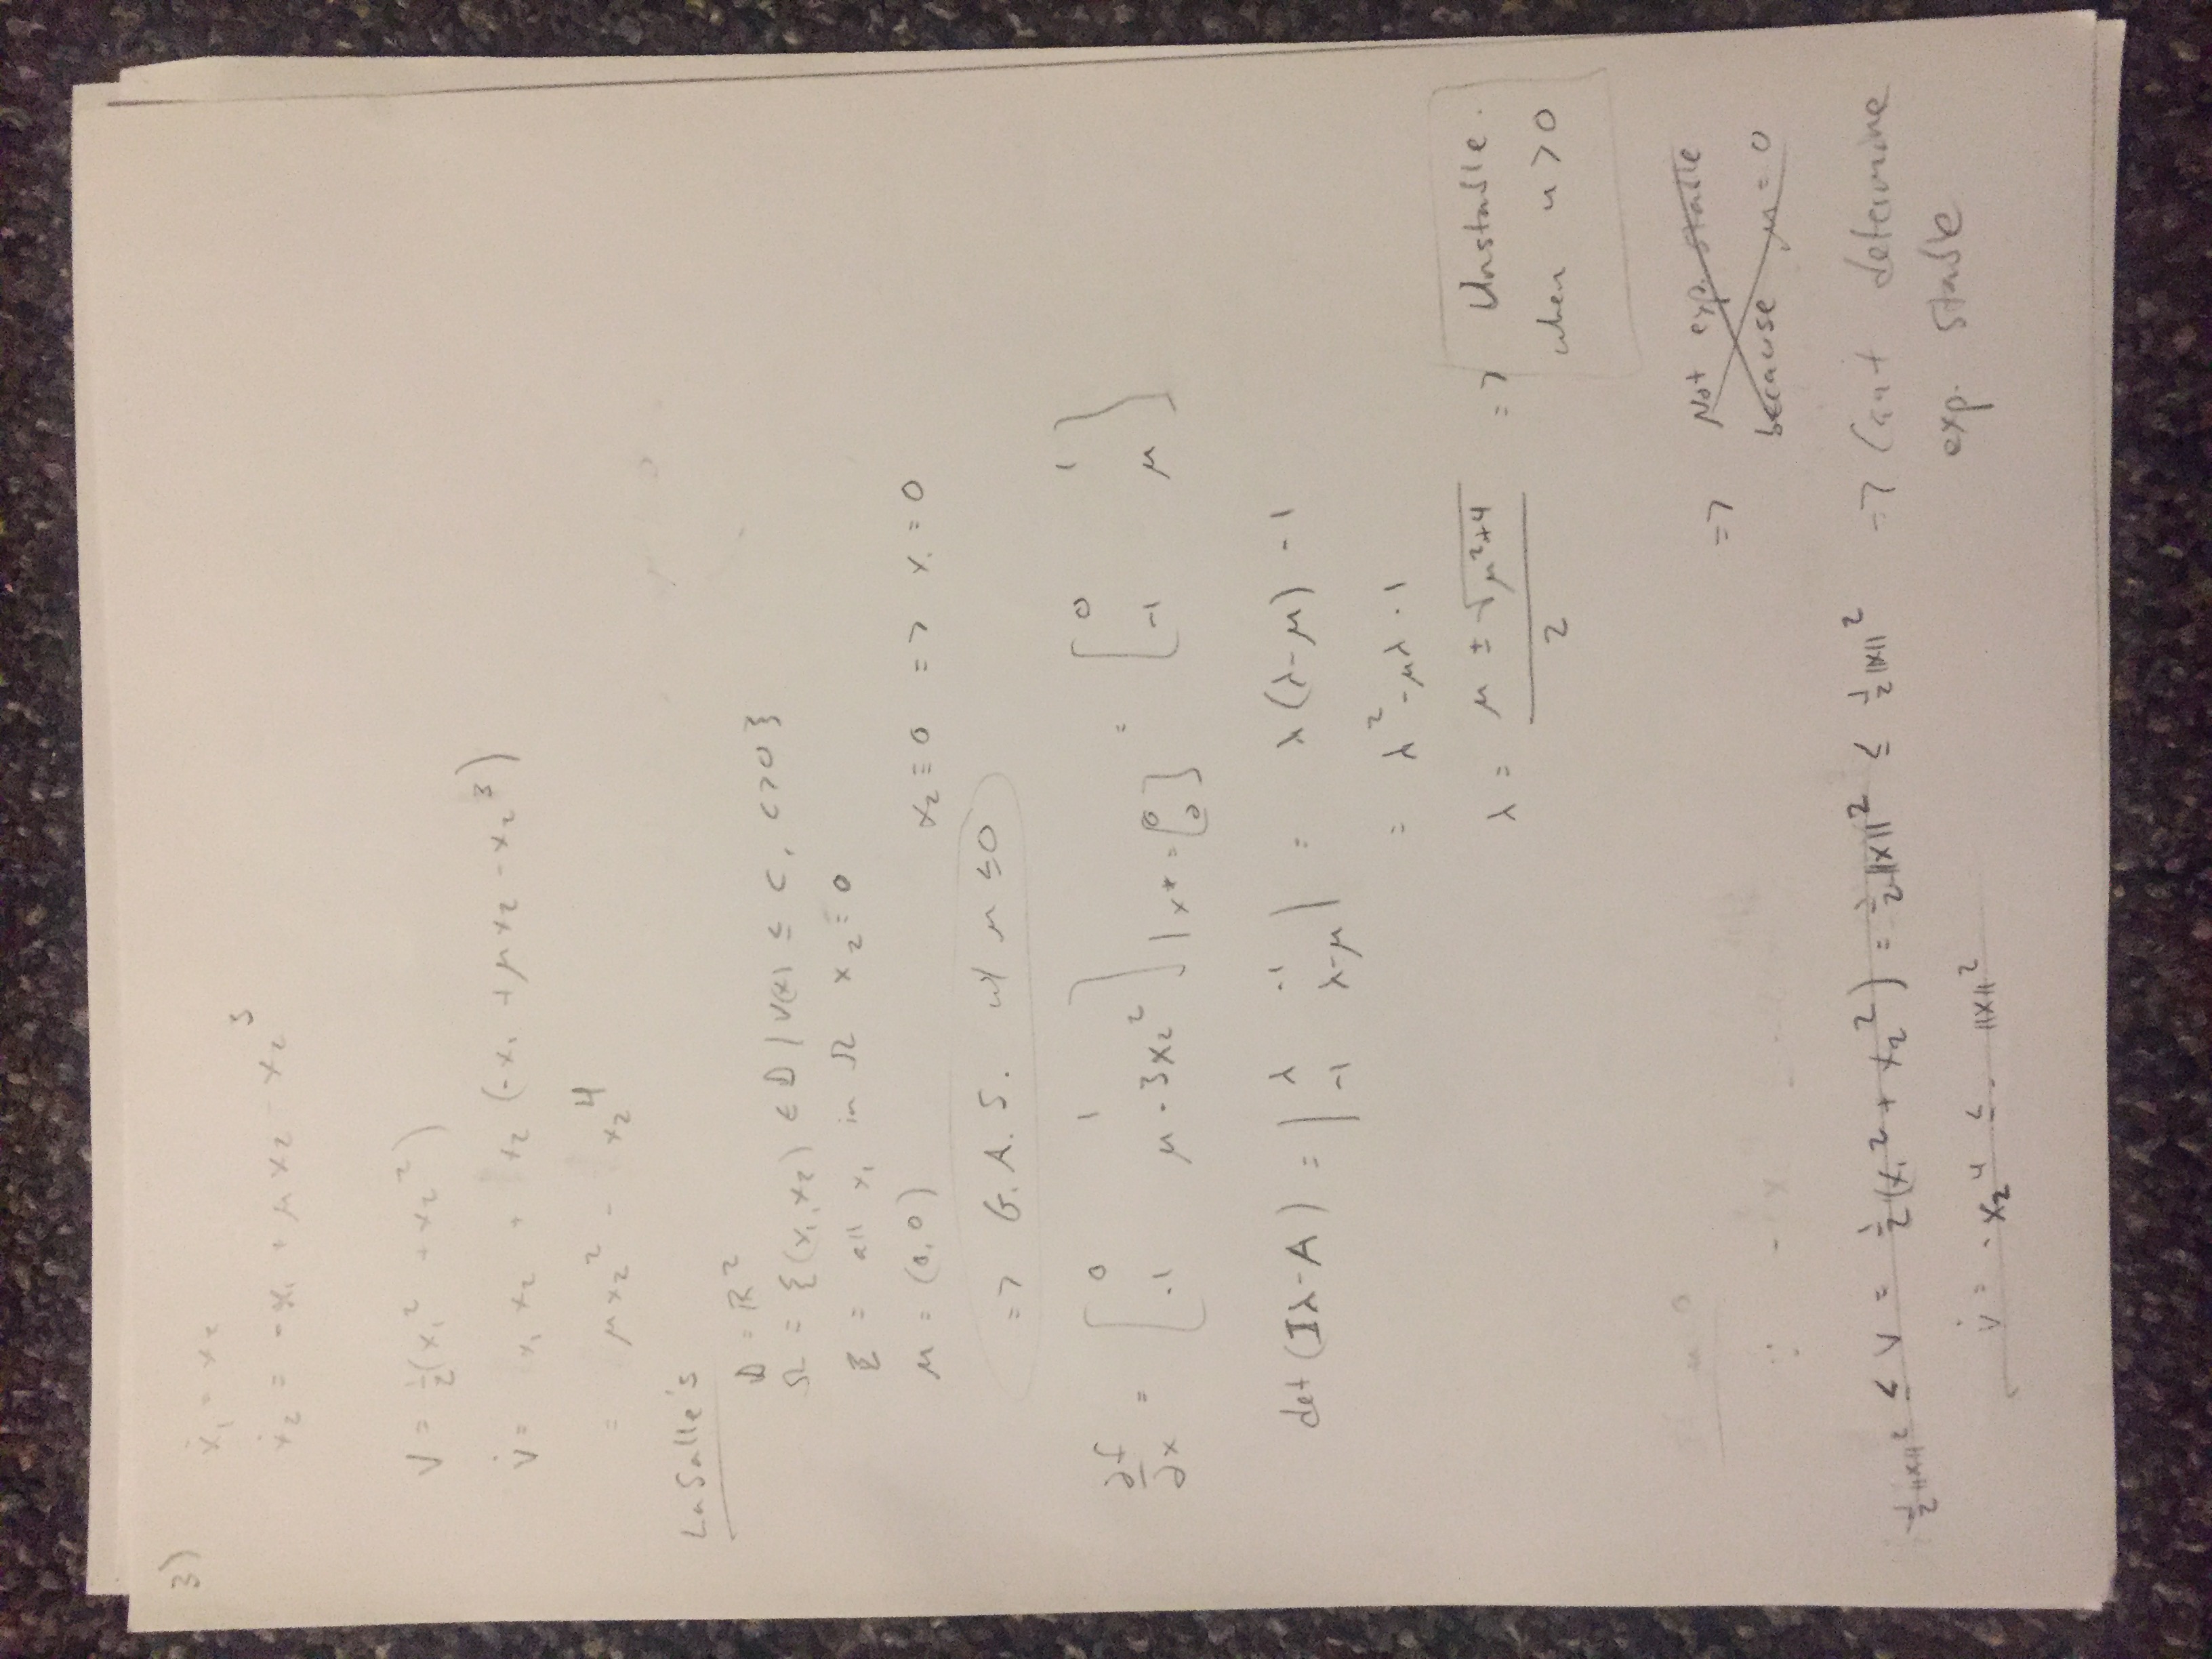 3)
ẋ₁ = x₂
ẋ₂ = -x₁ + μx₂ - x₂³
V = ½(x₁² + x₂²)
V̇ = x₁x₂ + x₂(-x₁ + μx₂ - x₂³)
= μx₂² - x₂⁴
LaSalle's
D = R²
Ω = {(x₁,x₂) ∈ D | V(x) ≤ c, c>0}
E = all x₁ in Ω x₂ = 0
M = (0,0) x₂ ≡ 0 => x₁ = 0
=> G.A.S. w/ μ ≤ 0
∂f/∂x = [0 1; -1 μ-3x₂²] | x* = [0; 0] = [0 1; -1 μ]
det(Iλ-A) = |λ -1; -1 λ-μ| = λ(λ-μ) - 1
= λ² - μλ - 1
λ = (μ ± √(μ²+4))/2 => Unstable.
when μ > 0
=> Not exp. stable
because μ = 0
½||x||² ≤ V = ½(x₁² + x₂²) = ½||x||² ≤ ½||x||² => Can't determine
exp. stable
V̇ = -x₂⁴ ≤ - ||x||²